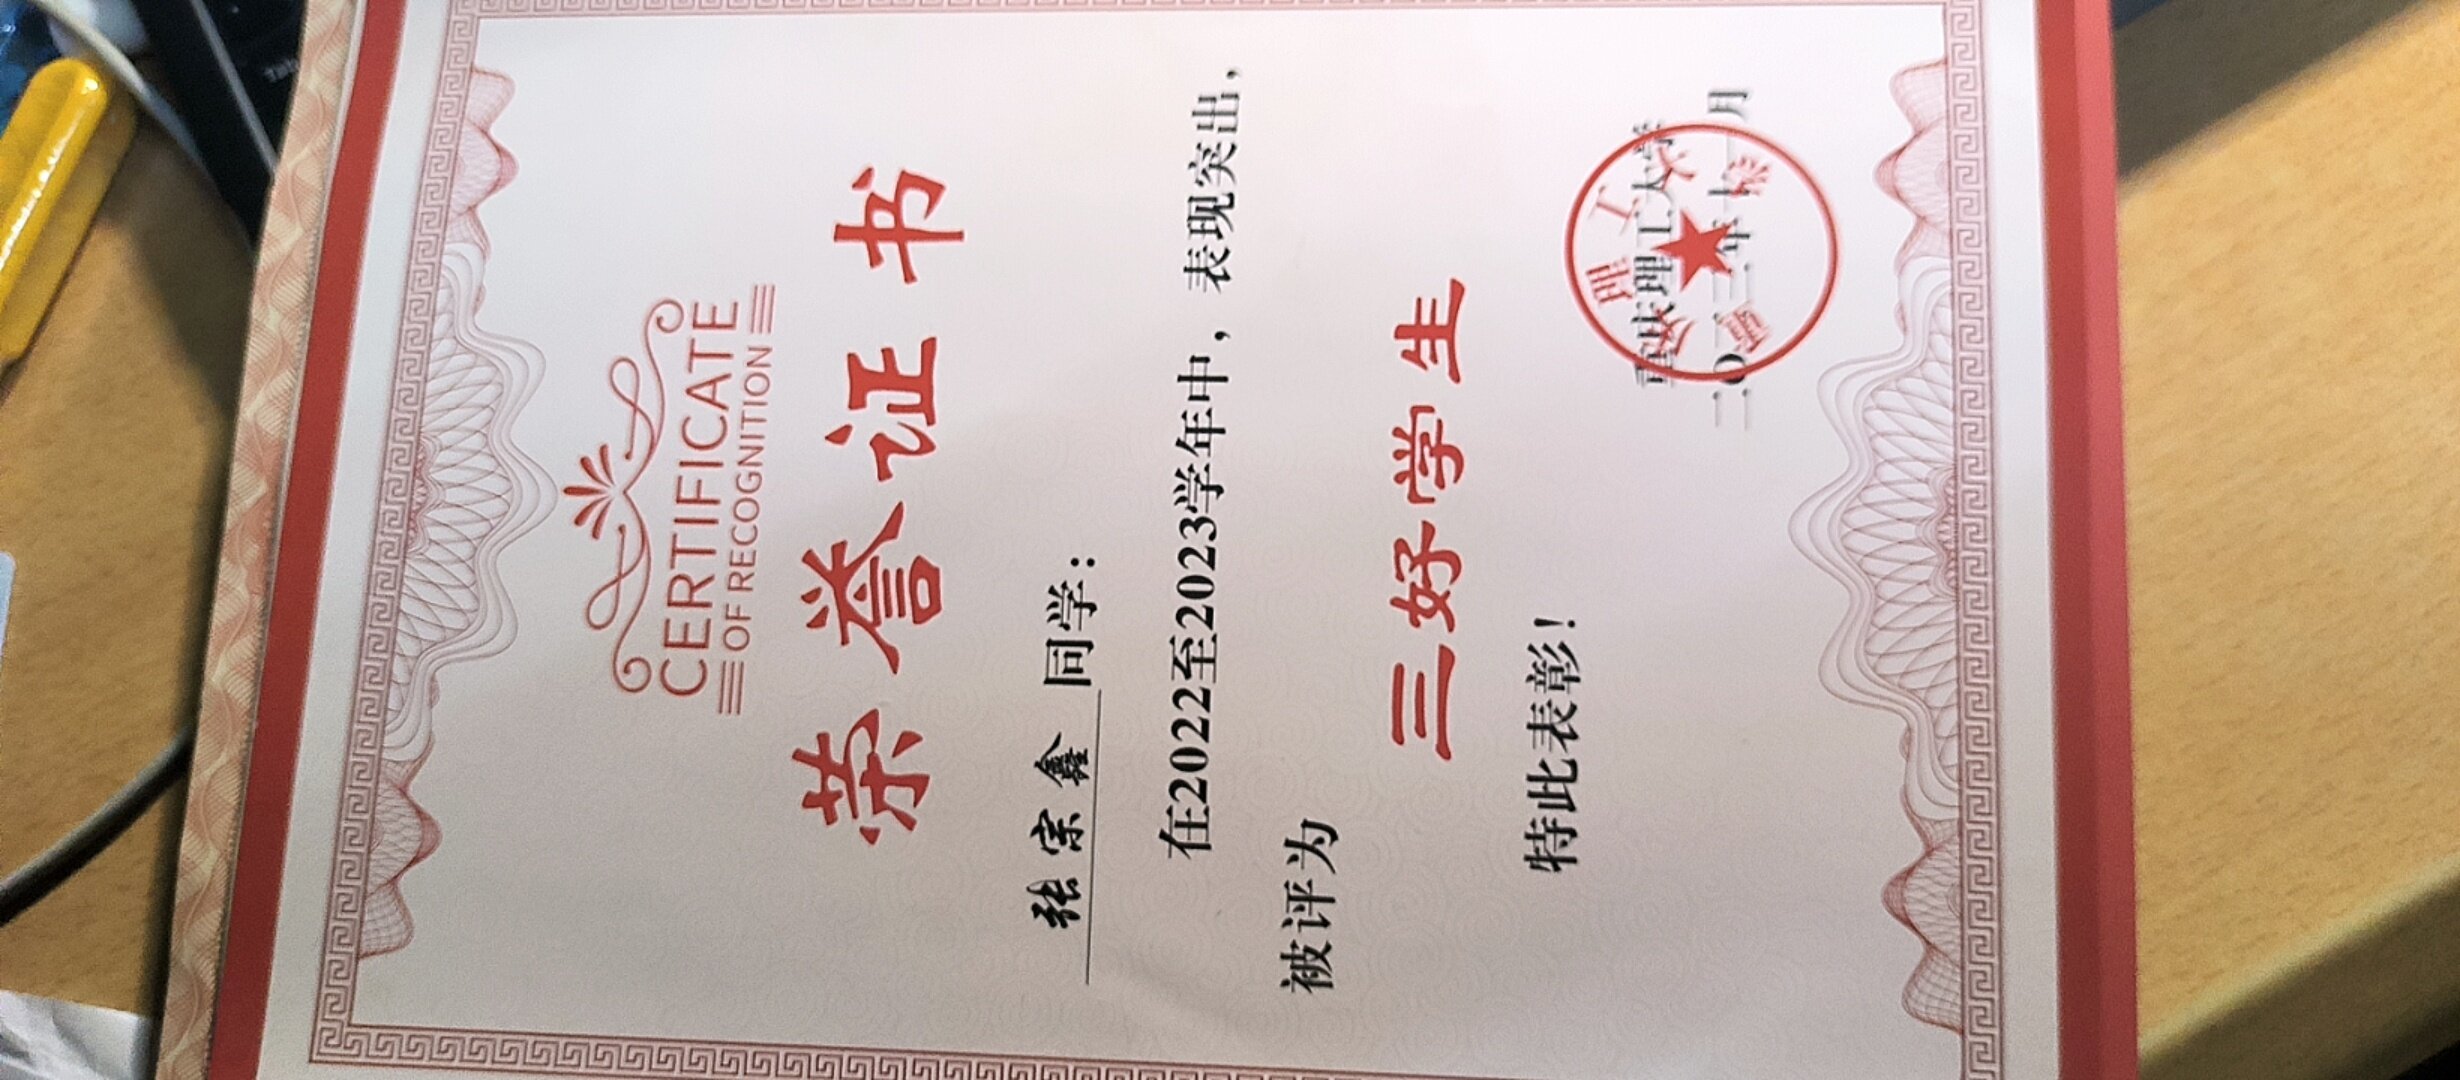 CERTIFICATE
OF RECOGNITION
荣誉证书
张宗鑫 同学：
在2022至2023学年中，表现突出，
被评为
三好学生
特此表彰！
重庆理工大学
二〇二三年十一月